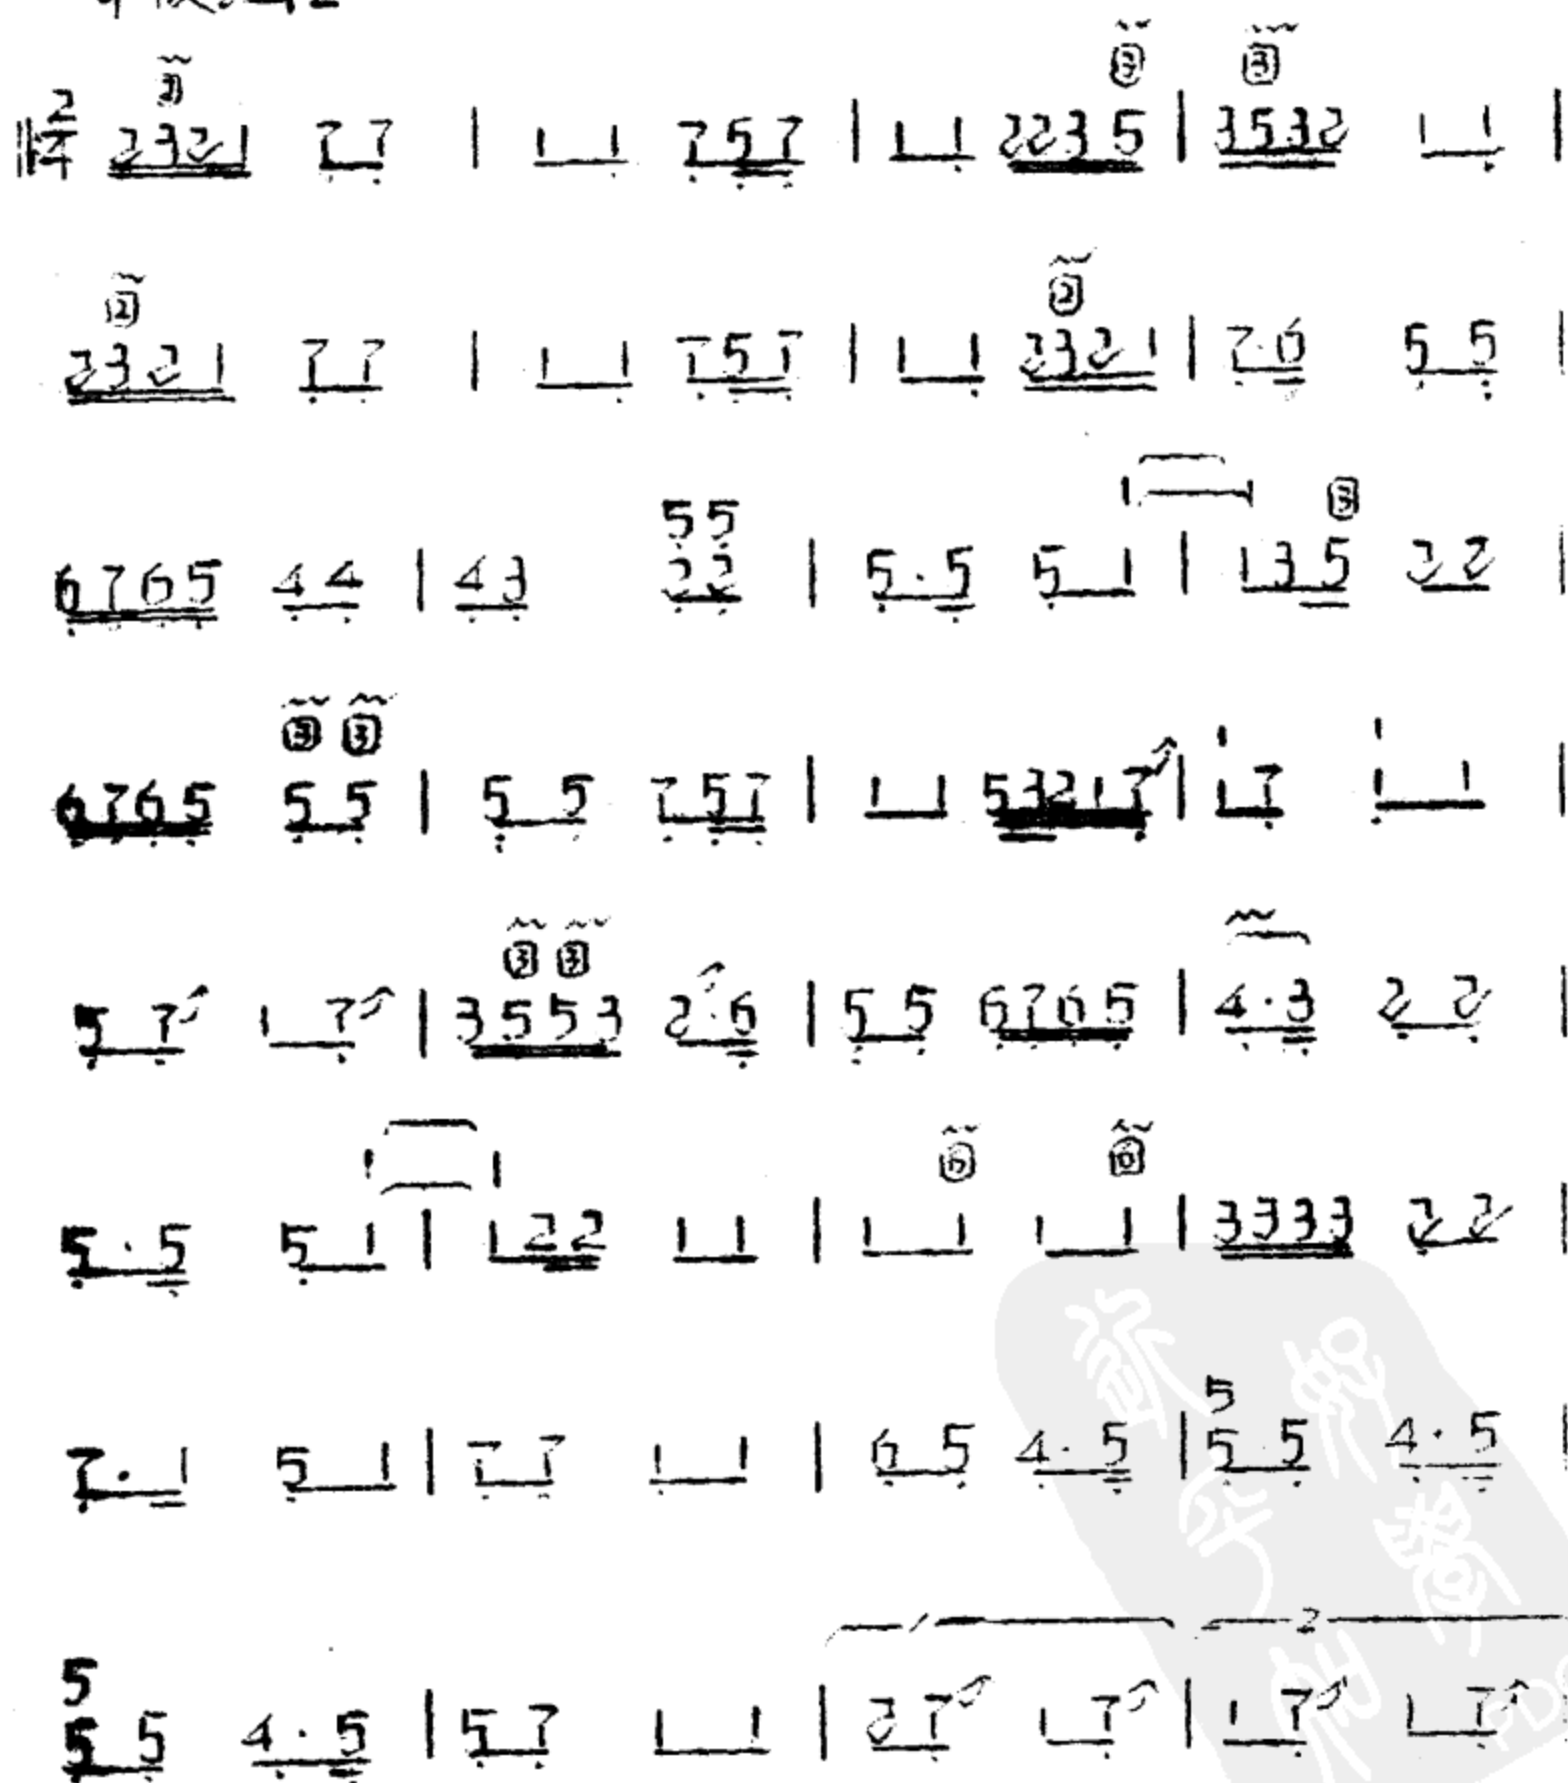 2/4 2321 77 | 11 757 | 11 2235 | 3532 11 |
2321 77 | 11 757 | 11 2321 | 7·6 55 |
6765 44 | 43 55 22 | 5·5 51 | 135 22 |
6765 55 | 55 757 | 11 53217 | 17 11 |
57 17 | 3553 2·6 | 55 6765 | 4·3 22 |
5·5 51 | 122 11 | 11 11 | 3333 22 |
7·1 51 | 77 11 | 65 4·5 | 5 55 4·5 |
5 55 4·5 | 57 11 | 27 17 | 17 17